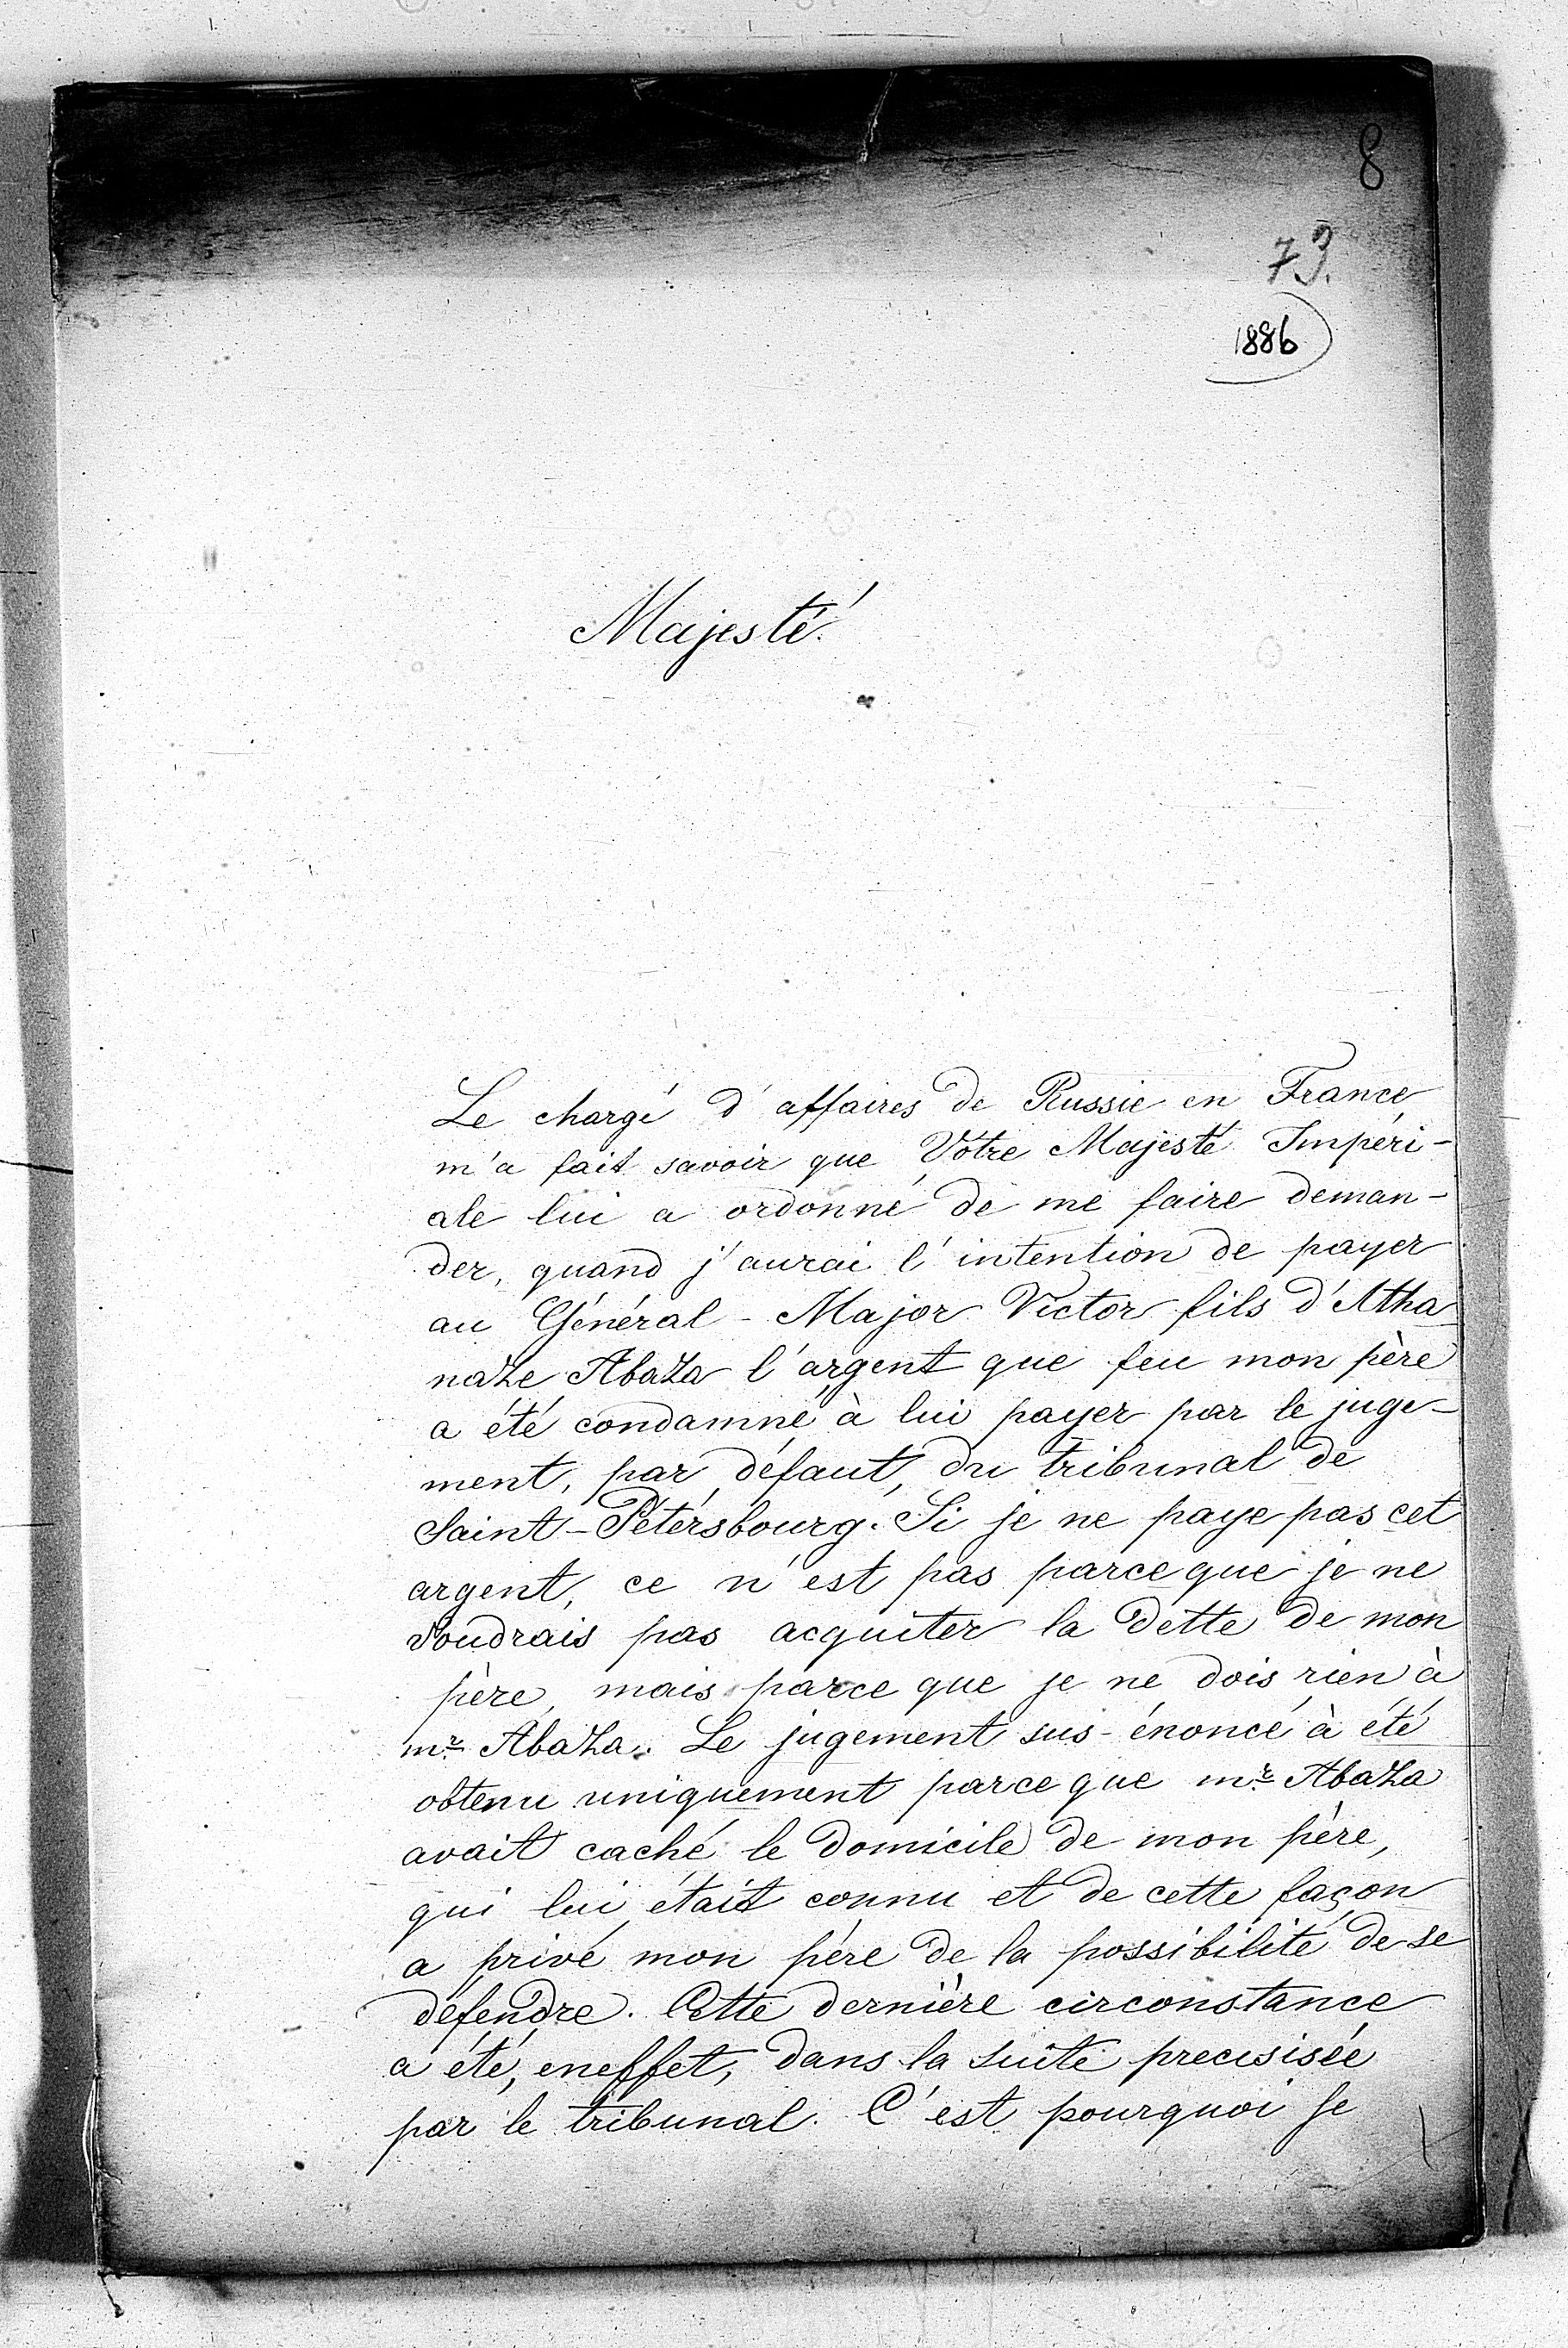 8
73.
1886
Majesté!
Le chargé d'affaires de Russie en France
m'a fait savoir que Vôtre Majesté Impéri-
ale lui a ordonné de me faire deman-
der, quand j'aurai l'intention de payer
au Général-Major Victor fils d'Atha-
naze Abaza l'argent que feu mon père
a été condamné à lui payer par le juge-
ment, par défaut, du tribunal de
Saint-Pétérsbourg. Si je ne paye pas cet
argent, ce n'est pas parceque je ne
voudrais pas acquiter la dette de mon
père, mais parce que je ne dois rien à
mr Abaza. Le jugement sus-énoncé à été
obtenu uniquement parceque mr Abaza
avait caché le domicile de mon père,
qui lui était connu et de cette façon
a privé mon père de la possibilité de se
défendre. Cette dernière circonstance
a été, eneffet, dans la suite precisisée
par le tribunal. C'est pourquoi je